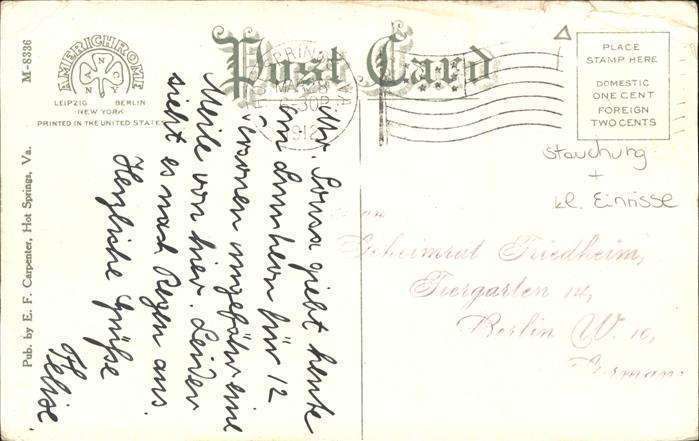 Post Card
M-8336
AMERICHROME
ANCN
LEIPZIG BERLIN
NEW YORK
PRINTED IN THE UNITED STATES
Pub. by E. F. Carpenter, Hot Springs, Va.
SPRIN
MAR
6-30P
1912
PLACE
STAMP HERE
DOMESTIC
ONE CENT
FOREIGN
TWO CENTS
Stauchung
+
kl. Einrisse
Mr. Sousa giebt heute
ein dinner für 12
Personen ungefähr eine
Meile von hier. Leider
sieht es nach Regen aus.
Herzliche Grüße
Geheimrat Friedheim,
Tiergarten 14,
Berlin W. 10,
German